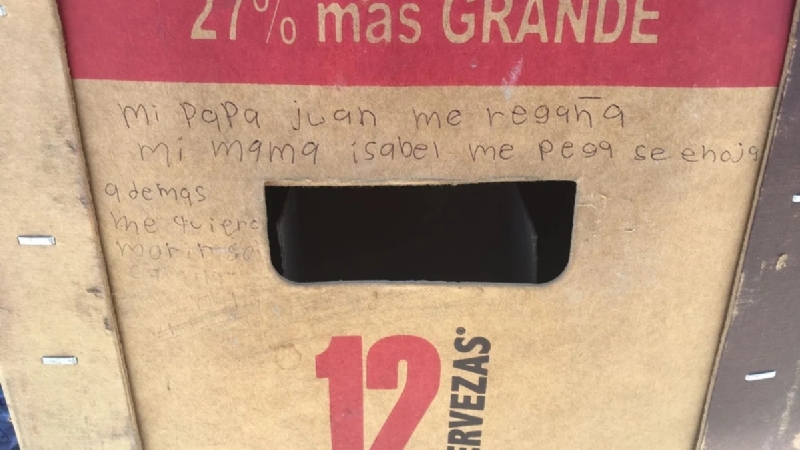 27% más GRANDE
mi papa juan me regaña
mi mama isabel me pega se enoja
ademas
me quiero
morir
12
ERVEZAS